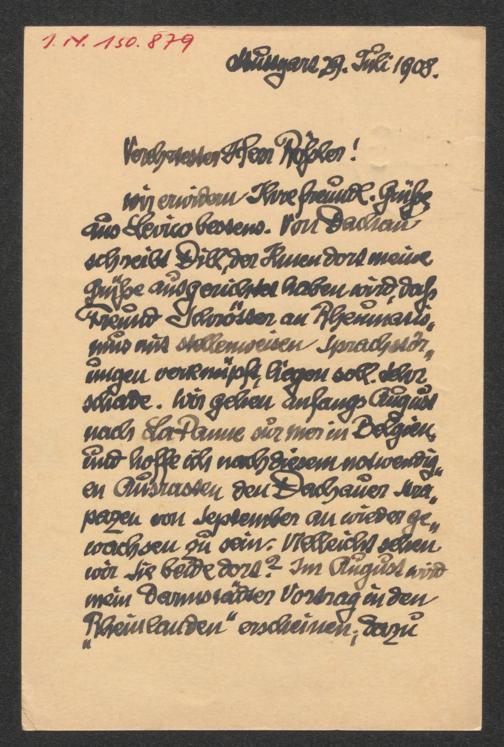 I.N. 150.879
Stuttgart 29. Juli 1908.
Verehrtester Herr Rößler!
wir erwidern Ihre freundl. Grüße
aus Levico bestens. Von Dachau
schreibt Dill, der Ihnen dort meine
Grüße ausgerichtet haben wird, daß
Freund Schrötter an Rheumatis„
mus mit stellenweisen Sprachstör„
ungen verknüpft, liegen soll. Sehr
schade. Wir gehen anfangs August
nach La Panne sur mer in Belgien,
und hoffe ich nach diesem notwendig„
en Ausrasten den Dachauer Stra„
pazen von September an wieder ge„
wachsen zu sein. Vielleicht sehen
wir Sie beide dort? Im August wird
mein Darmstädter Vortrag in den
„Rheinlanden“ erscheinen; dazu